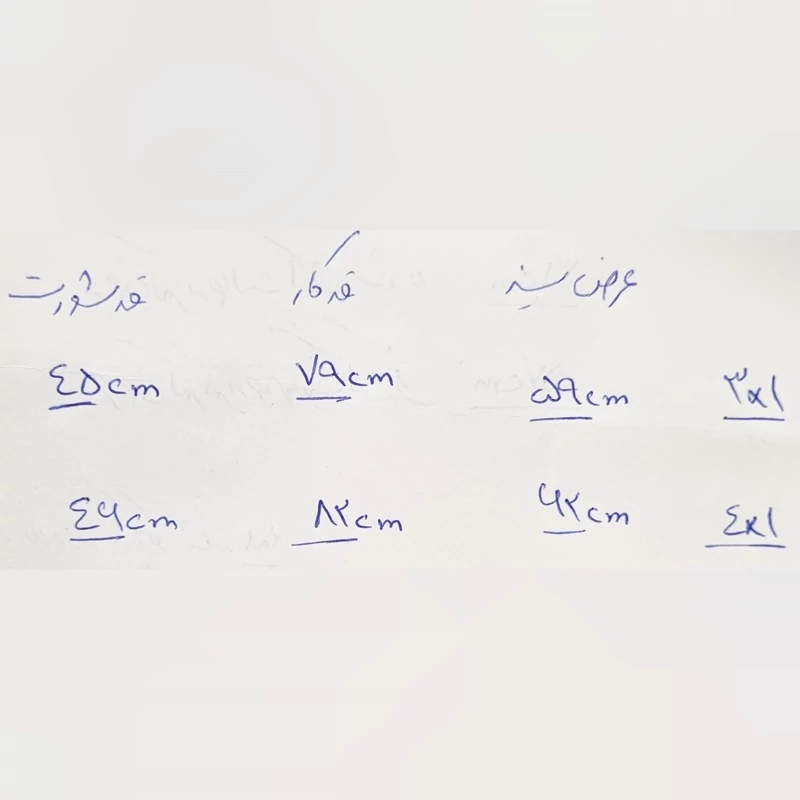 عرض سینه قد کار قد شورت
۳x۱ ۵۹cm ۷۹cm ٤۵cm
٤x۱ ۶۲cm ۸۲cm ٤۶cm